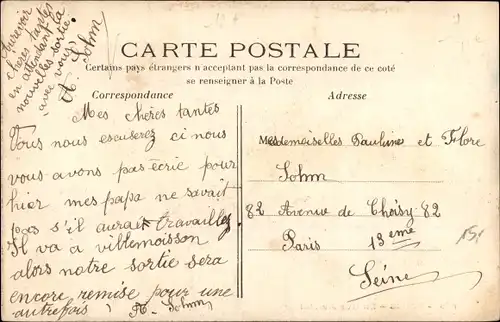 CARTE POSTALE
Certains pays étrangers n'acceptant pas la correspondance de ce coté
se renseigner à la Poste
Correspondance
Adresse
Mes chères tantes
Vous nous escuserez ci nous
vous avons pas écrie pour
hier mes papa ne savait
pas s'il aurait travailles
Il va a villemoisson
alors notre sortie sera
encore remise pour une
autrefois A. Sohm
Aurevoir
chères tantes
en attendant la
nouvelles sortie
avec vous
A Sohm
Mesdemoiselles Pauline et Flore
Sohm
82 Avenue de Choisy 82
Paris 13eme
Seine